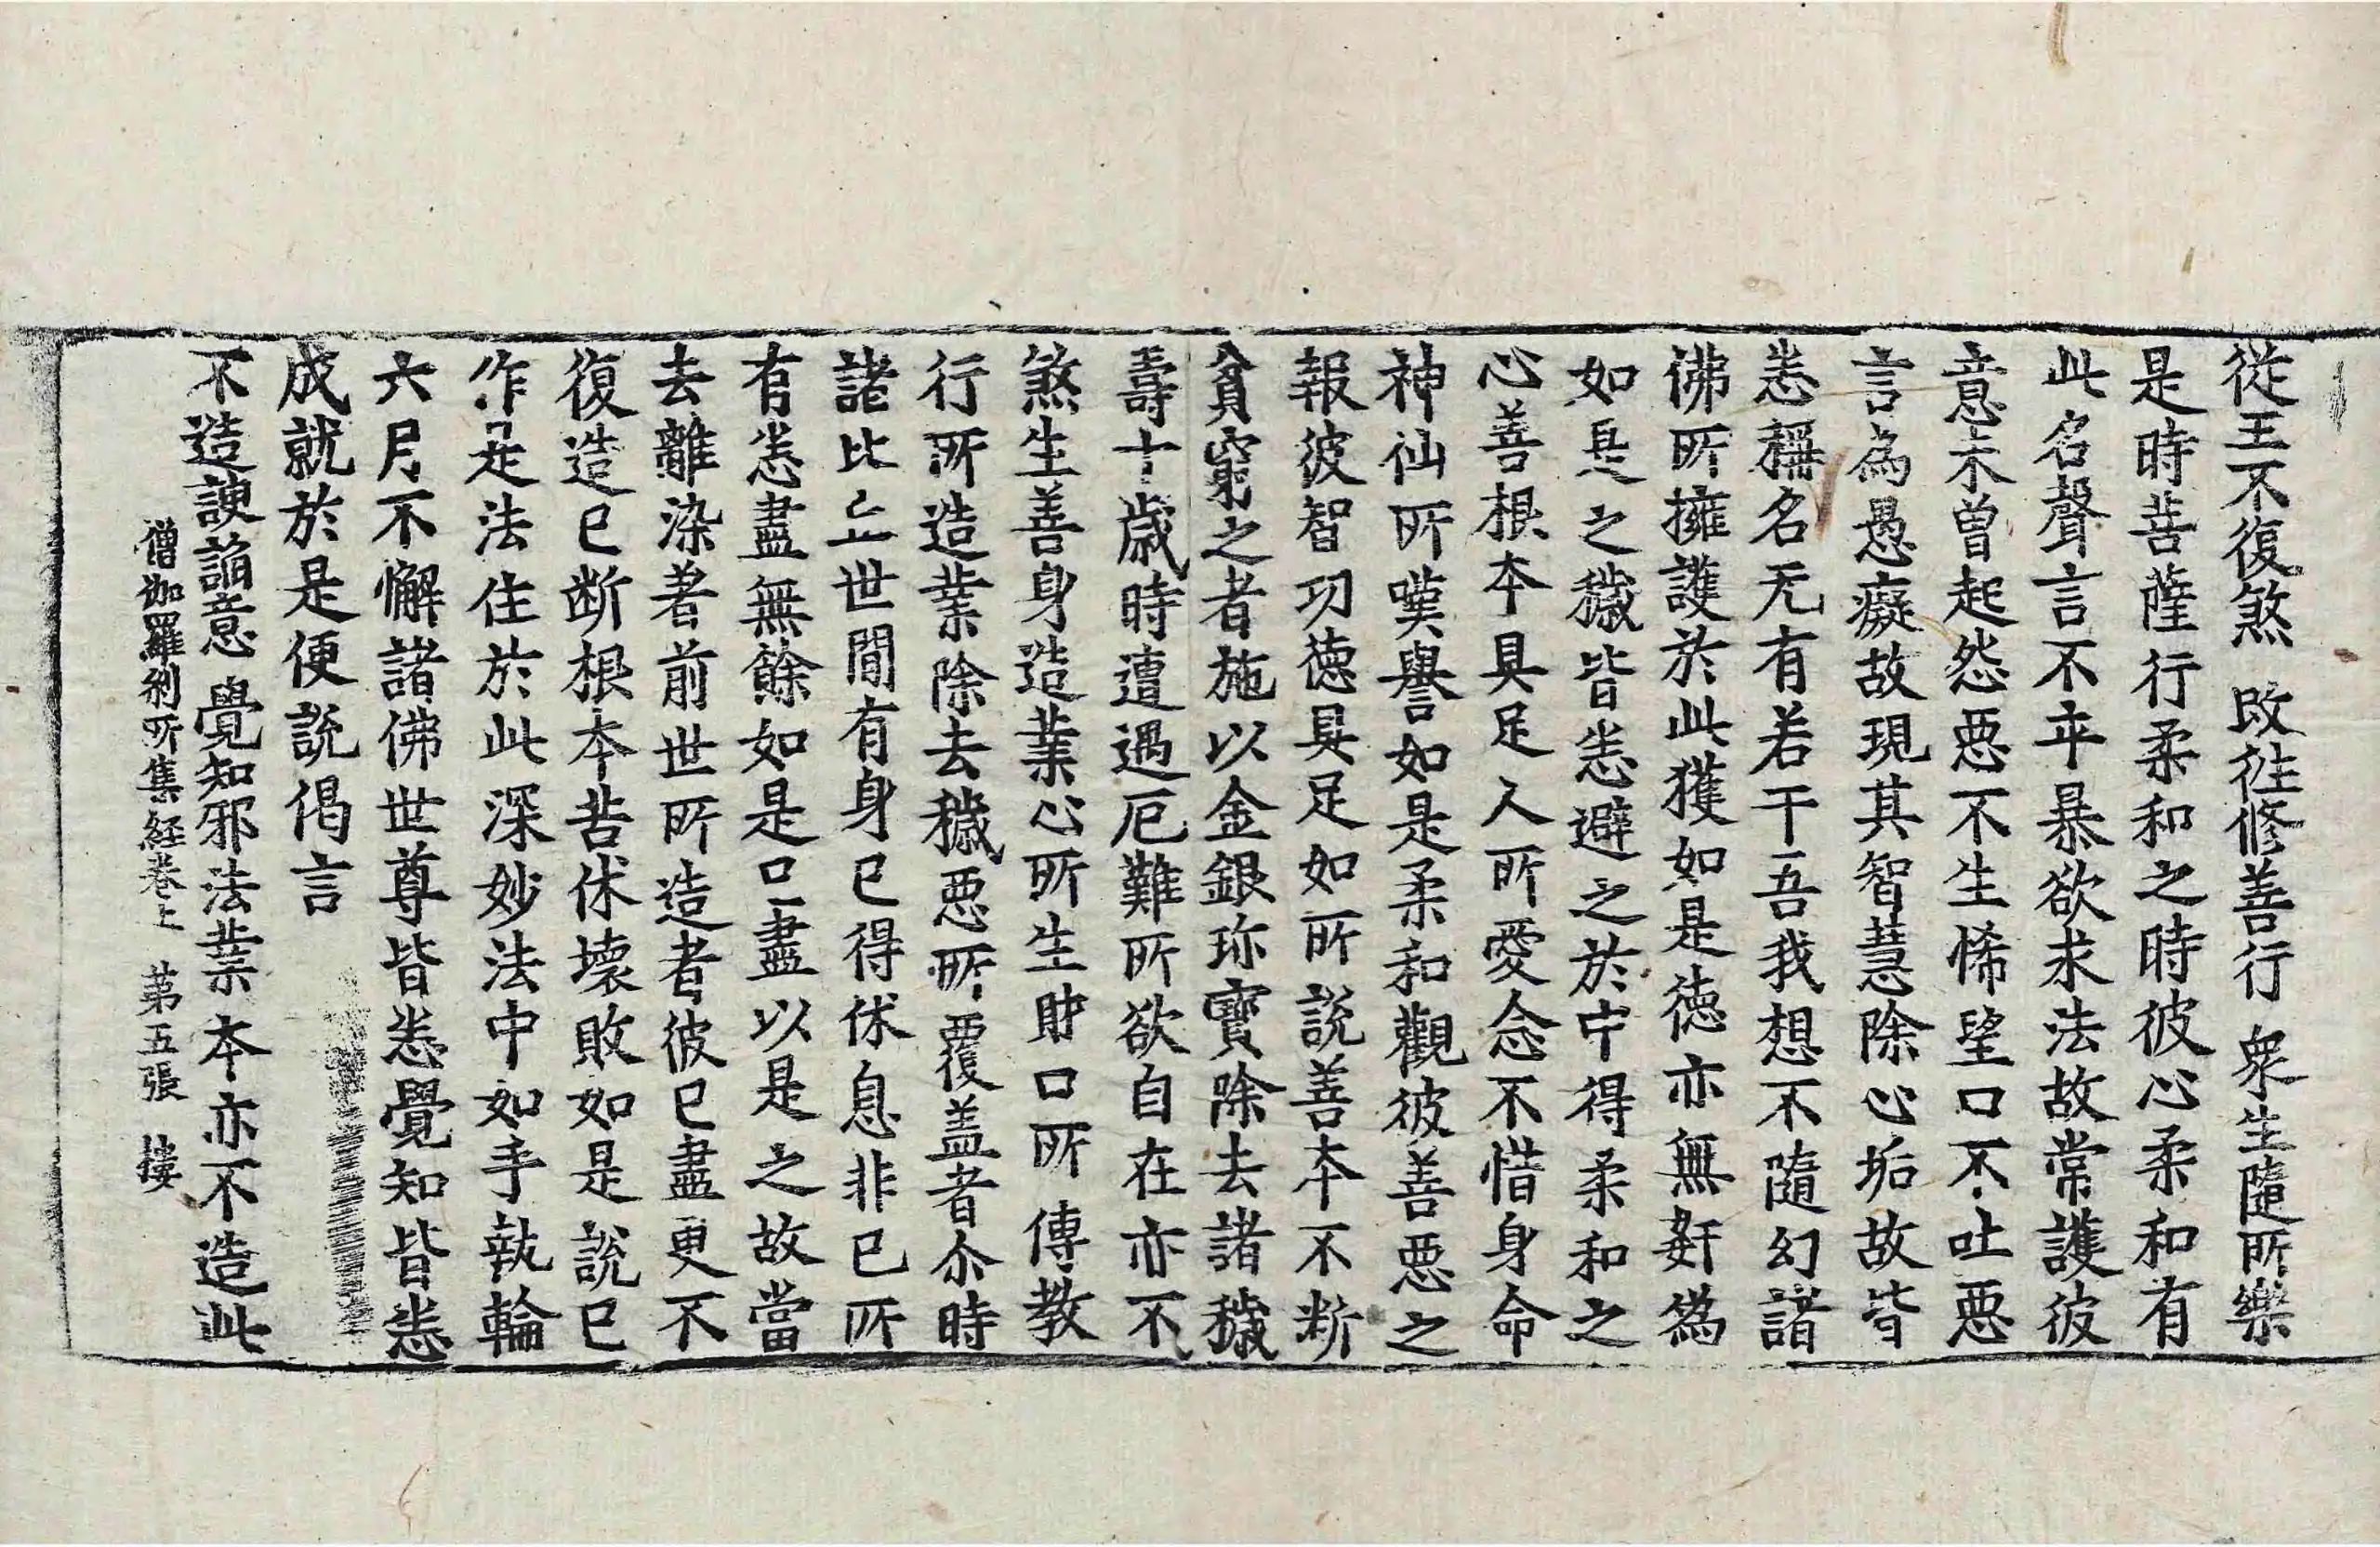 從王不復煞　改往修善行　衆生隨所樂
是時菩薩行柔和之時彼心柔和有
此名聲言不卒暴欲求法故常護彼
意未曾起怨惡不生悕望口不吐惡
言為愚癡故現其智慧除心垢故皆
悉稱名无有若干吾我想不隨幻諸
佛所擁護於此獲如是德亦無姧為
如是之穢皆悉避之於中得柔和之
心善根本具足人所愛念不惜身命
神仙所嘆譽如是柔和觀彼善惡之
報彼智功德具足如所說善本不斷
貧窮之者施以金銀珎寶除去諸穢
壽十歲時遭遇厄難所欲自在亦不
煞生善身造業心所生財口所傳教
行所造業除去穢惡所覆盖者尒時
諸比丘世間有身已得休息非已所
有悉盡無餘如是口盡以是之故當
去離染著前世所造者彼已盡更不
復造已断根本苦休壞敗如是說已
作是法住於此深妙法中如手執輪
六月不懈諸佛世尊皆悉覺知皆悉
成就於是便說偈言
不造諛謟意　覺知邪法業　本亦不造此
僧伽羅剎所集経卷上　苐五張　樓